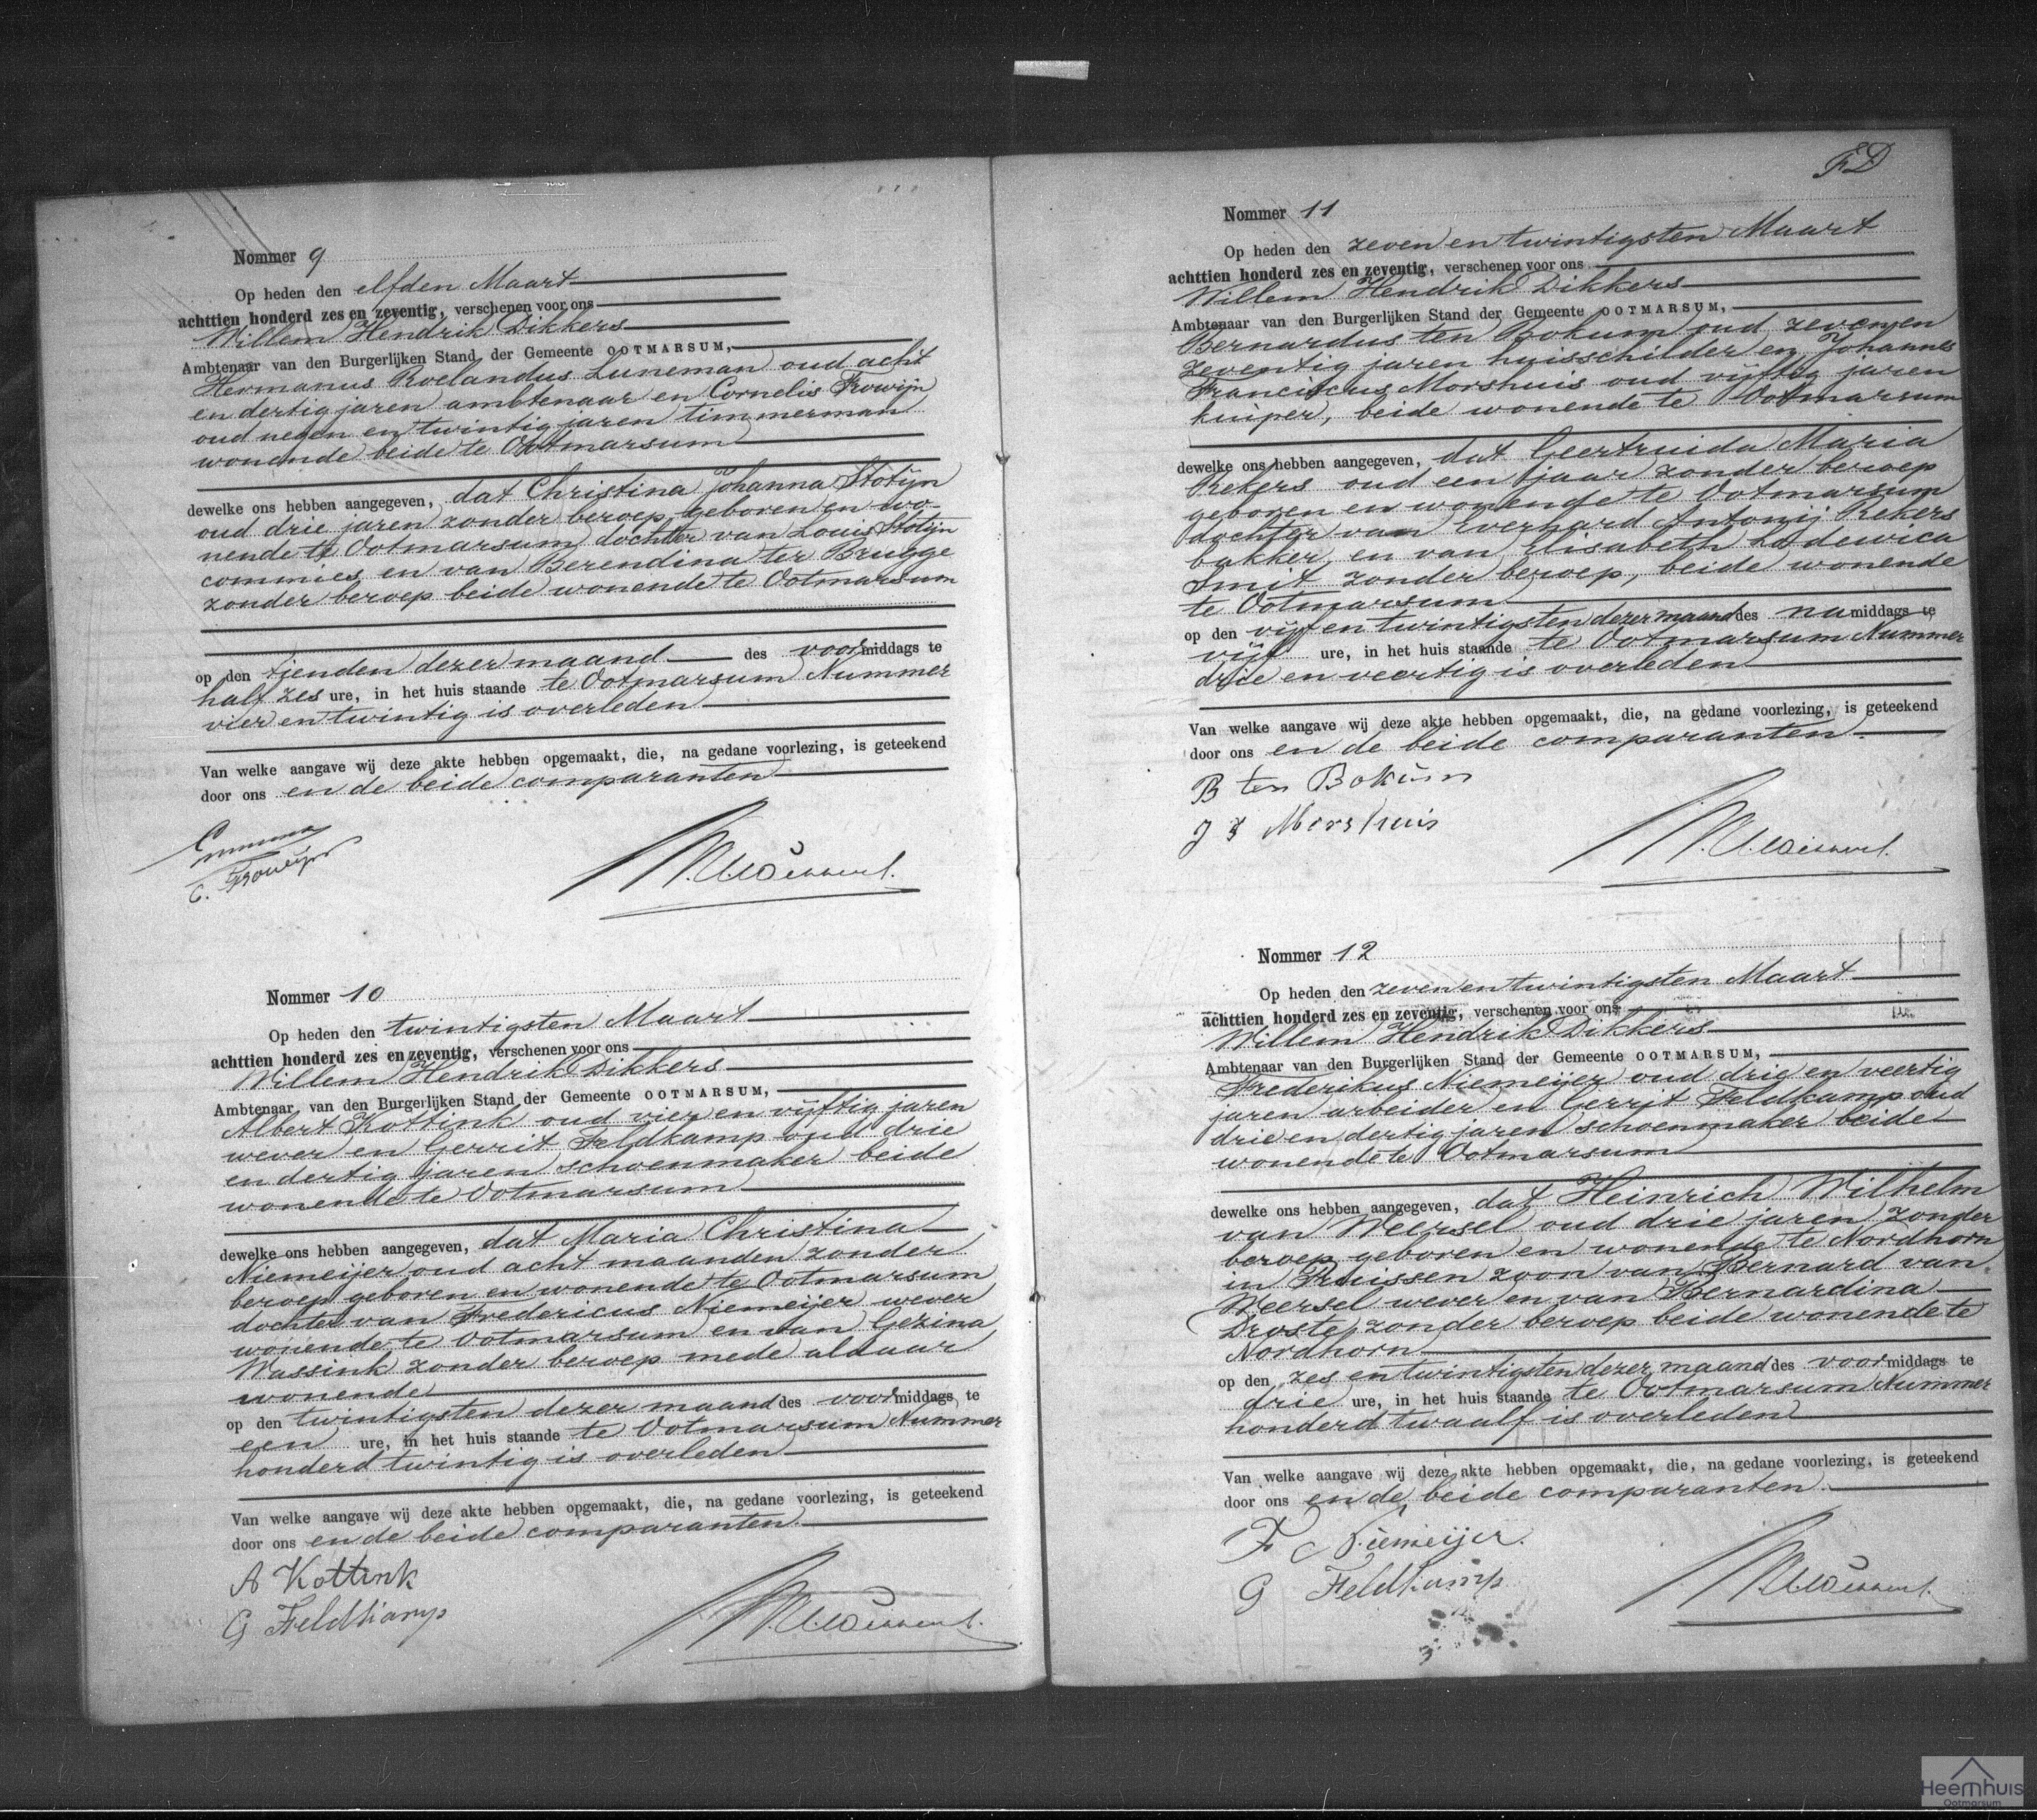 Nommer 9
Op heden den elfden Maart
achttien honderd zes en zeventig, verschenen voor ons
Willem Hendrik Dikkers
Ambtenaar van den Burgerlijken Stand der Gemeente OOTMARSUM,
Hermanus Roelandus Luneman oud acht
en dertig jaren ambtenaar en Cornelis Frowijn
oud negen en twintig jaren timmerman
wonende beide te Ootmarsum
dewelke ons hebben aangegeven, dat Christina Johanna Stotijn
oud drie jaren zonder beroep geboren en wo-
nende te Ootmarsum dochter van Louis Stotijn
commies en van Berendina ter Brugge
zonder beroep beide wonende te Ootmarsum
op den tienden dezer maand des voormiddags te
half zes ure, in het huis staande te Ootmarsum Nummer
vier en twintig is overleden
Van welke aangave wij deze akte hebben opgemaakt, die, na gedane voorlezing, is geteekend
door ons en de beide comparanten
C. Frowijn
Nommer 10
Op heden den twintigsten Maart
achttien honderd zes en zeventig, verschenen voor ons
Willem Hendrik Dikkers
Ambtenaar van den Burgerlijken Stand der Gemeente OOTMARSUM,
Albert Kottink oud vier en vijftig jaren
wever en Gerrit Feldkamp oud drie
en dertig jaren schoenmaker beide
wonende te Ootmarsum
dewelke ons hebben aangegeven, dat Maria Christina
Niemeijer oud acht maanden zonder
beroep geboren en wonende te Ootmarsum
dochter van Fredericus Niemeijer wever
wonende te Ootmarsum en van Gezina
Wassink zonder beroep mede aldaar
wonende
op den twintigsten dezer maand des voormiddags te
een ure, in het huis staande te Ootmarsum Nummer
honderd twintig is overleden
Van welke aangave wij deze akte hebben opgemaakt, die, na gedane voorlezing, is geteekend
door ons en de beide comparanten.
A Kottink
G Feldkamp
FD
Nommer 11
Op heden den zeven en twintigsten Maart
achttien honderd zes en zeventig, verschenen voor ons
Willem Hendrik Dikkers
Ambtenaar van den Burgerlijken Stand der Gemeente OOTMARSUM,
Bernardus ten Bokum oud zeven en
zeventig jaren huisschilder en Johannes
Franciscus Morshuis oud vijftig jaren
kuiper, beide wonende te Ootmarsum
dewelke ons hebben aangegeven, dat Geertruida Maria
Rekers oud een jaar zonder beroep
geboren en wonende te Ootmarsum
dochter van Everhard Antonij Rekers
bakker, en van Elisabeth Lodewica
Smit zonder beroep, beide wonende
te Ootmarsum
op den vijf en twintigsten dezer maand des namiddags te
vijf ure, in het huis staande te Ootmarsum Nummer
drie en veertig is overleden
Van welke aangave wij deze akte hebben opgemaakt, die, na gedane voorlezing, is geteekend
door ons en de beide comparanten.
B ten Bokum
J F Morshuis
Nommer 12
Op heden den zeven en twintigsten Maart
achttien honderd zes en zeventig, verschenen voor ons
Willem Hendrik Dikkers
Ambtenaar van den Burgerlijken Stand der Gemeente OOTMARSUM,
Frederikus Niemeijer oud drie en veertig
jaren arbeider en Gerrit Feldkamp oud
drie en dertig jaren schoenmaker beide
wonende te Ootmarsum
dewelke ons hebben aangegeven, dat Heinrich Wilhelm
van Weersel oud drie jaren zonder
beroep geboren en wonende te Nordhorn
in Pruissen zoon van Bernard van
Weersel wever en van Bernardina
Droste zonder beroep beide wonende te
Nordhorn
op den zes en twintigsten dezer maand des voormiddags te
drie ure, in het huis staande te Ootmarsum Nummer
honderd twaalf is overleden
Van welke aangave wij deze akte hebben opgemaakt, die, na gedane voorlezing, is geteekend
door ons en de beide comparanten
F Niemeijer.
G Feldkamp
Heemhuis
Ootmarsum